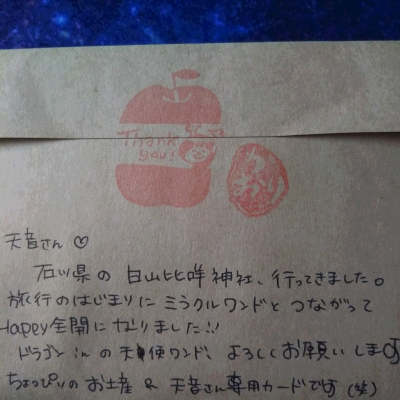 Thank
you!
天音さん♡
石川県の白山比咩神社、行ってきました。
旅行のはじまりにミラクルワンドとつながって
Happy全開になりました!!
ドラゴン inの天使ワンド、よろしくお願いします
ちょっぴりのお土産 & 天音さん専用カードです(笑)